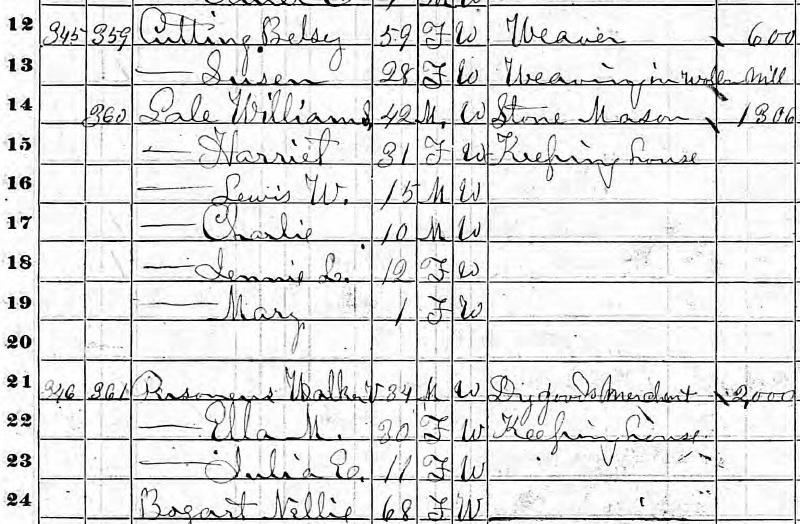 12 345 359 Cutting Betsy 59 F W Weaver 600
13 — Susen 28 F W Weaving in Mill
14 360 Gale William 42 M. W Stone Mason 1306
15 — Harriet 31 F W Keeping house
16 — Lewis W. 15 M W
17 — Charlie 10 M W
18 — Jennie L. 12 F W
19 — Mary 1 F W
20
21 346 361 34 M W Dry goods Merchant 2000
22 — Ella M. 30 F W Keeping house
23 — Julia E. 11 F W
24 Bogart Nellie 68 F W